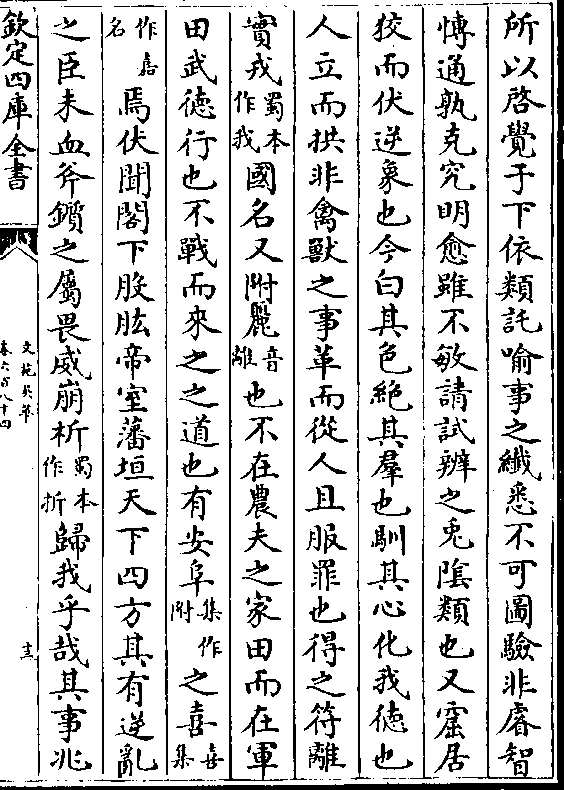 所以啓覺于下依類託喻事之纖悉不可圖驗非睿智
慱通孰克究明愈雖不敏請試辨之兎隂類也又窟居
狡而伏逆象也今白其色絶其羣也馴其心化我德也
人立而拱非禽獸之事革而從人且服罪也得之符離
實戎蜀本作我國名又附麗音離也不在農夫之家田而在軍
田武德行也不戰而來之之道也有安阜集作附之喜集喜
作嘉名焉伏聞閣下股肱帝室藩垣天下四方其有逆亂
之臣未血斧鑕之屬畏威崩析蜀本作折歸我乎哉其事兆
欽定四庫全書
文苑英華
卷六百八十四
十三